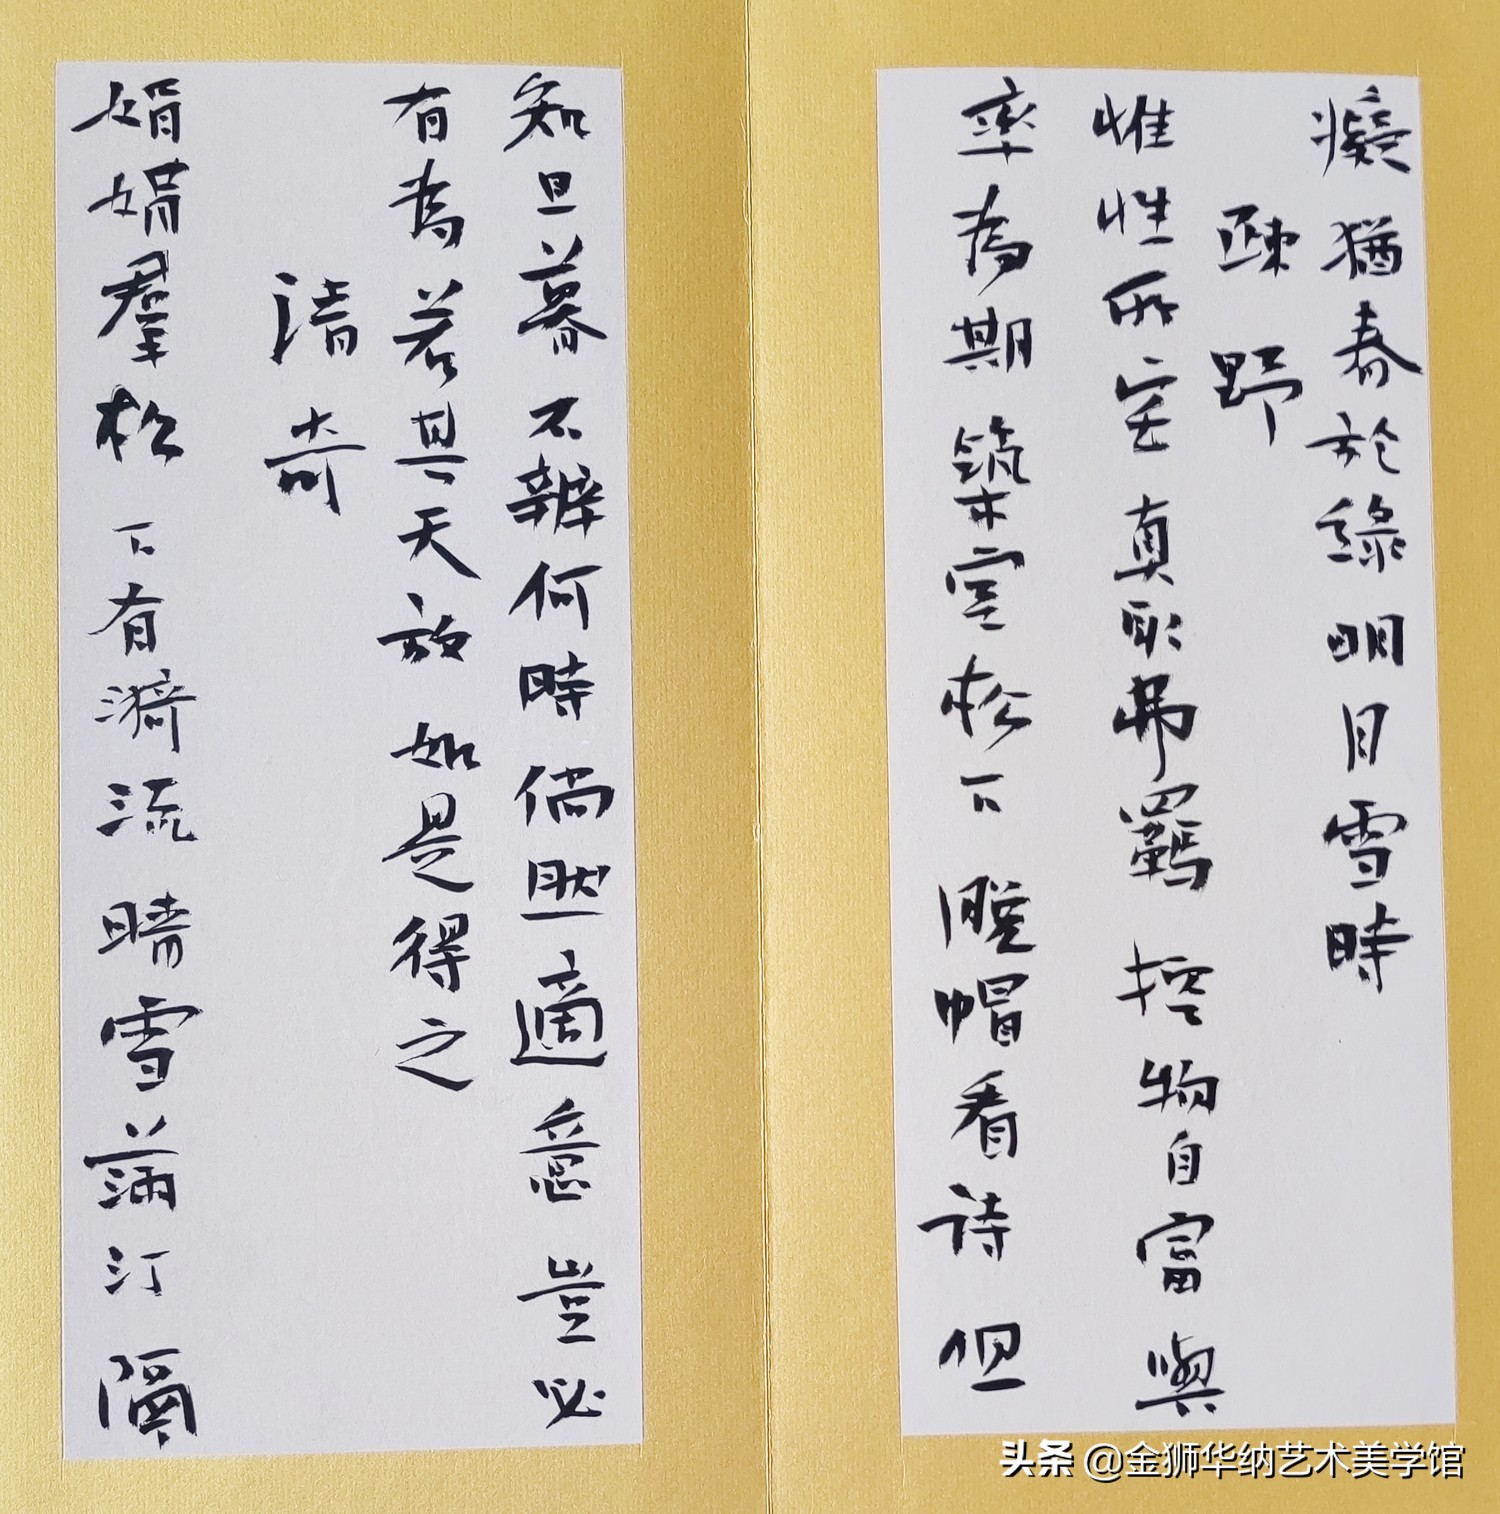 癡猶春於綠明月雪時
疎野
惟性所宅真取弗羈控物自富與
率為期築室松下脫帽看詩但
知旦暮不辨何時倘然適意豈必
有為若其天放如是得之
清奇
娟娟羣松下有漪流晴雪滿汀隔
头条 @金狮华纳艺术美学馆